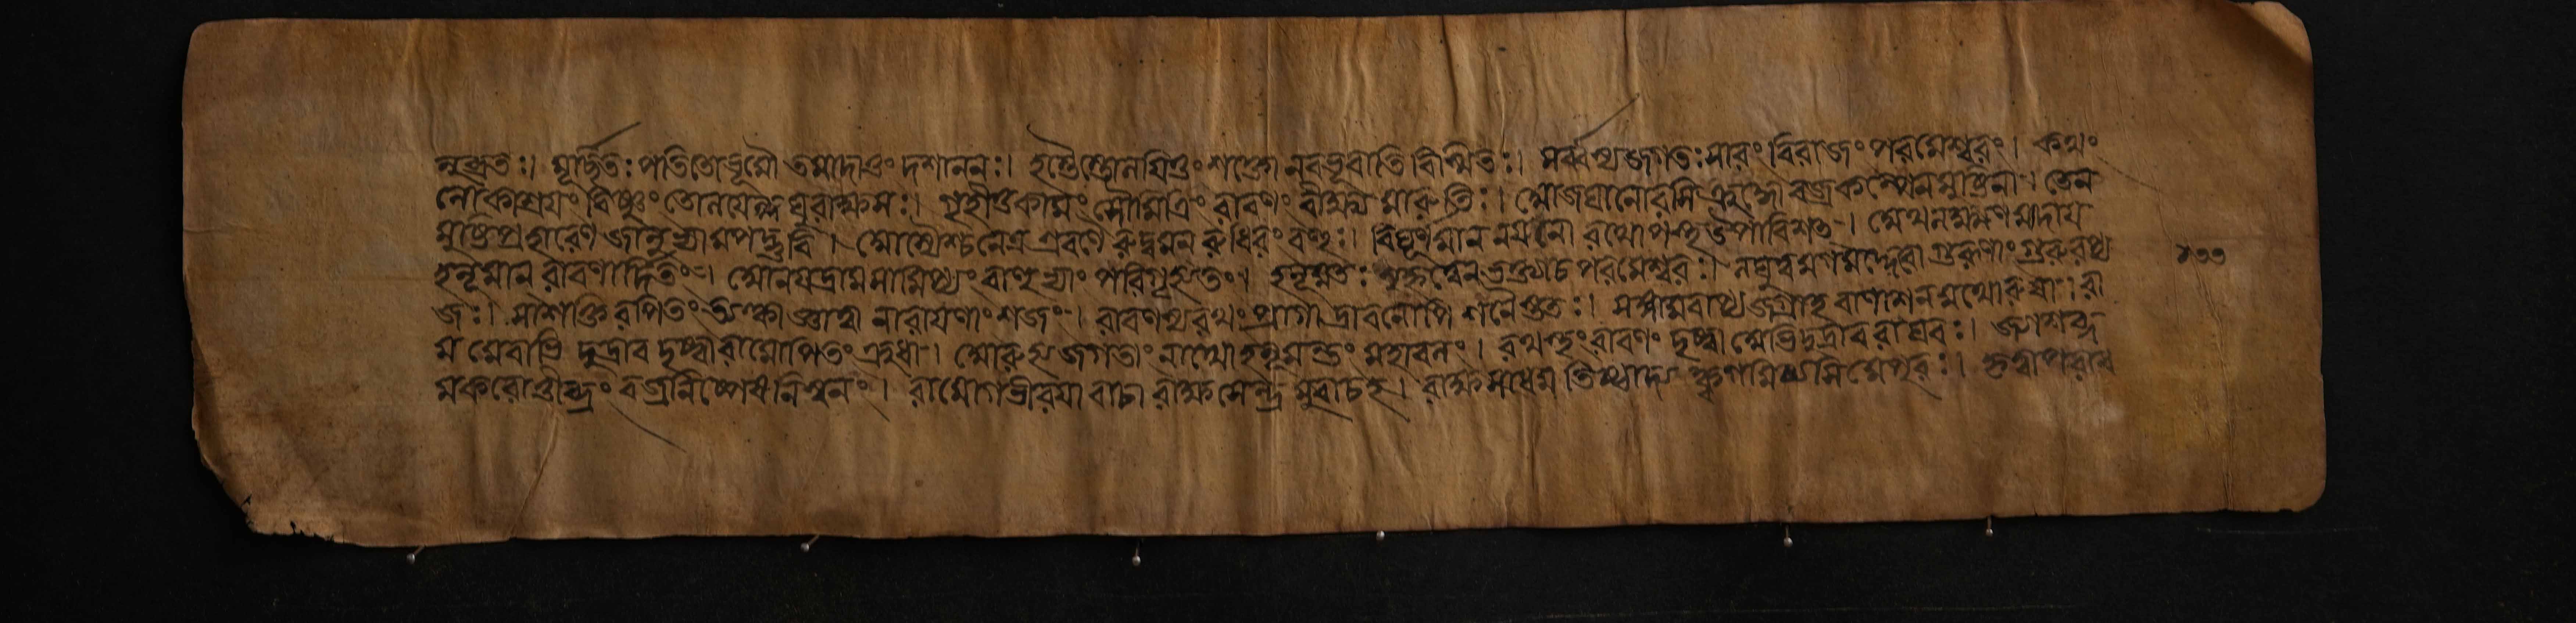 ন্যদ্ভুতঃ। মূর্চ্ছিতঃ পতিতোভূমৌ তমাদাতুং দশাননঃ। হস্তৈস্তোলয়িতুং শক্তো নবভূবাতি বিস্মিতঃ। সর্ব্বস্যজগতঃ সারং বিরাজং পরমেশ্বরং। কথং
লোকাশ্রয়ং বিষ্ণুং তোলয়েল্লঘুরাক্ষসঃ। গৃহীতুকামং সৌমিত্রিং রাবণং বীক্ষ্য মারুতিঃ। আজঘানোরসি ক্রুদ্ধো বজ্রকল্পেন মুষ্টিনা। তেন
মুষ্টিপ্রহারেণ জানুভ্যামপতদ্ভুবি। আস্যৈশ্চ নেত্রশ্রবণৈ রুদ্বমন রুধিরং বহুঃ। বিঘূর্ণমান নয়নো রথোপস্থ উপাবিশৎ। অথ লক্ষ্মণমাদায়
হনূমান রাবণার্দ্দিতং। আনয়দ্রাম সামিপ্যং বাহুভ্যাং পরিগৃহ্যতং। হনূমতঃ সুহৃত্ত্বেন ভক্ত্যাচ পরমেশ্বরঃ। লঘুত্বমগমদ্দেবো গুরূণাং গুরুরপ্য
জঃ। সাশক্তিরপিতং ত্যক্ত্বা জ্ঞাত্বা নারায়ণাংশজং। রাবণস্যরথং প্রাগা দ্রাবণোপি শনৈস্ততঃ। সংজ্ঞামবাপ্য জগ্রাহ বাণাশনমথোরুষা। রা
মমেবাভি দুদ্রাব দৃষ্ট্বা রামোপিতং ক্রুধা। আরুহ্য জগতাং নাথো হনূমন্তং মহাবলং। রথস্থং রাবণং দৃষ্ট্বা অভিদুদ্রাব রাঘবঃ। জ্যাশব্দ
মকরোত্তীব্রং বজ্রনিষ্পেষ নিস্বনং। রামো গম্ভীরয়া বাচা রাক্ষসেন্দ্র মুবাচহ। রাক্ষসাধম তিষ্ঠাদ্য ক্বগমিষ্যসি মেপুরঃ। কৃত্বাপরাধ